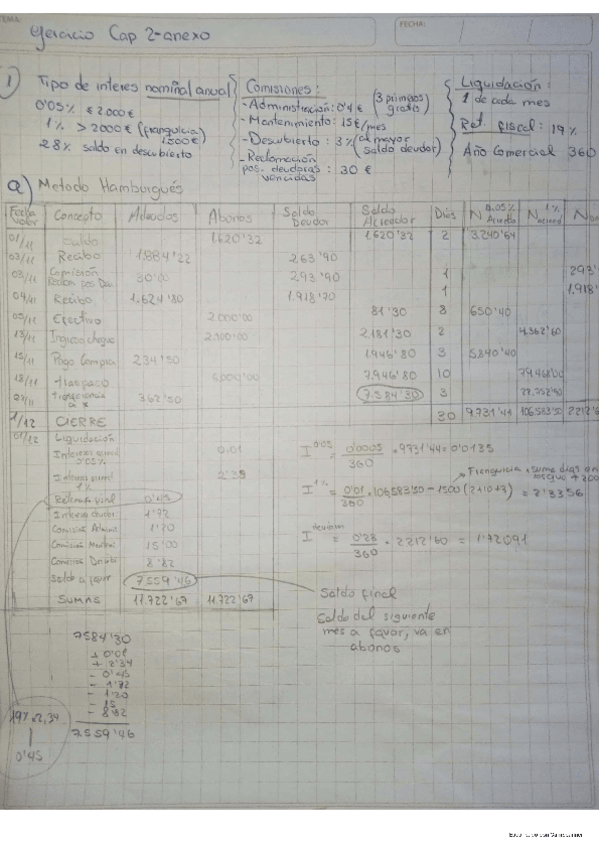 TEMA:
Ejercicio Cap 2-anexo
FECHA:
1) Tipo de interes nominal anual
0'05% ≤ 2000€
1% > 2000€ (franquicia 1500€)
28% saldo en descubierto
Comisiones:
- Administración: 0'4€ (3 primeros gratis)
- Mantenimiento: 15€/mes
- Descubierto: 3% (al mayor saldo deudor)
- Reclamación pos. deudoras vencidas: 30€
Liquidación:
1 de cada mes
Ret. fiscal: 19%
Año Comercial 360
a) Metodo Hamburgués
Fecha valor Concepto Adeudos Abonos Saldo Deudor Saldo Acreedor Días N 0.05% Acreedor N 1% Acreed
01/11 Saldo 1.620'32 1.620'32 2 3.240'64
02/11 Recibo 1.884'22 263'90
03/11 Comisión Reclam pos Deu 30'00 293'90 1 293'
04/11 Recibo 1.624'80 1.918'70 1 1.918'
05/11 Efectivo 2.000'00 81'30 8 650'40
13/11 Ingreso cheque 2.100'00 2.181'30 2 4.362'60
15/11 Pago Compra 234'50 1.946'80 3 5.840'40
18/11 Traspaso 6.000'00 7.946'80 10 79.468'00
362'50 7.584'30 3 22.752'90
30 9.731'44 106.583'50 2212'6
1/12 CIERRE
01/12 Liquidación
Intereses acreed 0'05% 0.01
Intereses acreed 1% 2'35
Retenc fiscal 0'45
Interes deudor 1'72
Comisión Admin 1'20
Comisión Mant 15'00
Comisión Descub 8'82
Saldo a favor 7.559'46
SUMAS 11.722'67 11.722'67
I 0'05 = 0'0005/360 · 9731'44 = 0'0135
Franquicia, suma dias en los que > 2000
I 1% = 0'01/360 · 106583'50 - 1500 (2+10+3) = 2'3356
I deudor = 0'28/360 · 2212'60 = 1'72091
Saldo final
Saldo del siguiente
mes a favor, va en
abonos
7584'30
+ 0'01
+ 2'34
- 0'45
- 1'72
- 1'20
- 15
- 8'82
7.559'46
19% x 2,34
0'45